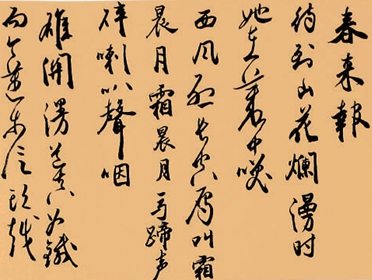 春来報
待到山花爛漫时
她在丛中咲
西风烈长空雁叫霜
晨月霜晨月马蹄声
碎喇叭聲咽
雄関漫道真如鐵
而今迈步从头越